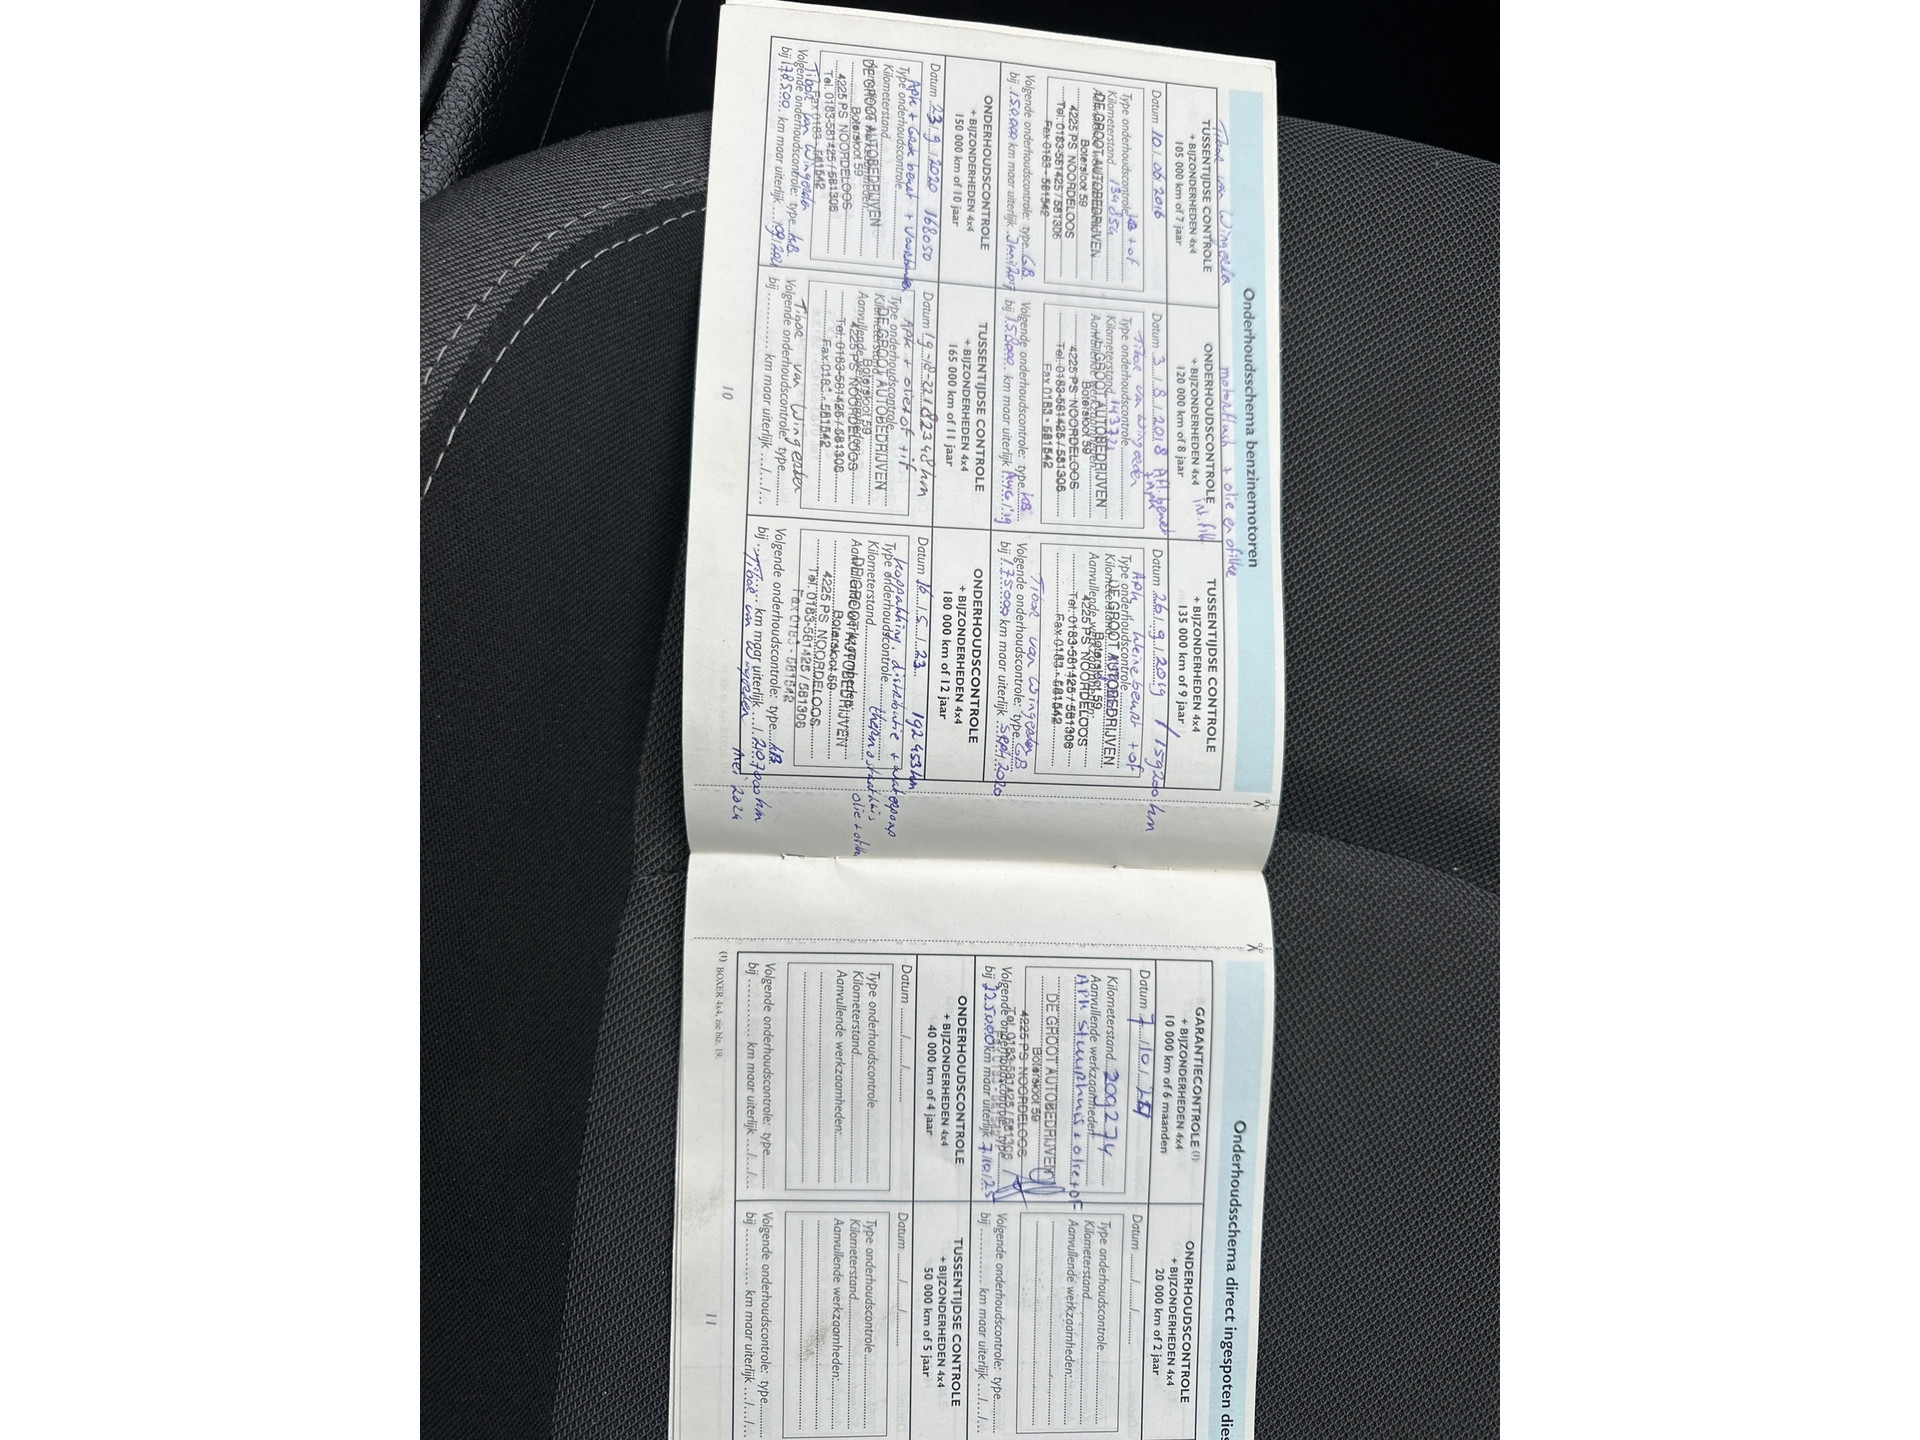 Onderhoudsschema benzinemotoren
Tiboor van Wingerden
TUSSENTIJDSE CONTROLE
+ BIJZONDERHEDEN 4x4
105 000 km of 7 jaar
Datum 10 / 06 / 2016
Type onderhoudscontrole kb + of
Kilometerstand 134854
DE GROOT AUTOBEDRIJVEN
Botersloot 59
4225 PS NOORDELOOS
Tel. 0183-581425 / 581306
Fax 0183 - 581542
Volgende onderhoudscontrole: type GB
bij 150.000 km maar uiterlijk Juni/2017
motorflush + olie en ofilke
ONDERHOUDSCONTROLE
+ BIJZONDERHEDEN 4x4
120 000 km of 8 jaar
Datum 3 / 8 / 2018
Type onderhoudscontrole
Tiboor van Wingerden
Kilometerstand 143721
DE GROOT AUTOBEDRIJVEN
Botersloot 59
4225 PS NOORDELOOS
Tel. 0183-581425 / 581306
Fax 0183 - 581542
Volgende onderhoudscontrole: type kB
bij 158000 km maar uiterlijk Aug / '19
TUSSENTIJDSE CONTROLE
+ BIJZONDERHEDEN 4x4
135 000 km of 9 jaar
Datum 26 / 9 / 2019 / 159200 km
Apk, kleine beurt + of
Type onderhoudscontrole
Kilometerstand
Aanvullende werkzaamheden:
DE GROOT AUTOBEDRIJVEN
Botersloot 59
4225 PS NOORDELOOS
Tel. 0183-581425 / 581306
Fax 0183 - 581542
Tiboor van Wingerden
Volgende onderhoudscontrole: type GB
bij 175.000 km maar uiterlijk Sept 2020
ONDERHOUDSCONTROLE
+ BIJZONDERHEDEN 4x4
150 000 km of 10 jaar
Datum 23 / 9 / 2020 168050
Apk + Grote beurt +
Type onderhoudscontrole
Kilometerstand
DE GROOT AUTOBEDRIJVEN
Botersloot 59
4225 PS NOORDELOOS
Tel. 0183-581425 / 581306
Fax 0183 - 581542
Tiboor van Wingerden
Volgende onderhoudscontrole: type kB
bij 178.500 km maar uiterlijk /09/2021
TUSSENTIJDSE CONTROLE
+ BIJZONDERHEDEN 4x4
165 000 km of 11 jaar
Datum 182348 km
Apk + olie + of + if
Type onderhoudscontrole
Kilometerstand
Aanvullende werkzaamheden:
DE GROOT AUTOBEDRIJVEN
Botersloot 59
4225 PS NOORDELOOS
Tel. 0183-581425 / 581306
Fax 0183 - 581542
Tiboor van Wingerden
Volgende onderhoudscontrole: type
bij km maar uiterlijk .../.../...
ONDERHOUDSCONTROLE
+ BIJZONDERHEDEN 4x4
180 000 km of 12 jaar
Datum 16 / 5 / 23 192453 km
koppakking, distributie + waterpomp
Type onderhoudscontrole thermostaathuis
Kilometerstand olie + ofilke
Aanvullende werkzaamheden:
DE GROOT AUTOBEDRIJVEN
Botersloot 59
4225 PS NOORDELOOS
Tel. 0183-581425 / 581306
Fax 0183 - 581542
Volgende onderhoudscontrole: type kB
bij km maar uiterlijk 210.700 km
Tiboor van Wingerden mei 2024
10
Onderhoudsschema direct ingespoten dies
GARANTIECONTROLE (1)
+ BIJZONDERHEDEN 4x4
10 000 km of 6 maanden
Datum 7 / 10 /
Kilometerstand 209274
Aanvullende werkzaamheden:
APK stuurhuis + olie + of
DE GROOT AUTOBEDRIJVEN
Botersloot 59
4225 PS NOORDELOOS
Tel. 0183-581425 / 581306
Volgende onderhoudscontrole: type
bij 225000 km maar uiterlijk 7/10/25
ONDERHOUDSCONTROLE
+ BIJZONDERHEDEN 4x4
20 000 km of 2 jaar
Datum ......./......./.......
Type onderhoudscontrole
Kilometerstand
Aanvullende werkzaamheden:
Volgende onderhoudscontrole: type
bij km maar uiterlijk .../.../...
ONDERHOUDSCONTROLE
+ BIJZONDERHEDEN 4x4
40 000 km of 4 jaar
Datum ......./......./.......
Type onderhoudscontrole
Kilometerstand
Aanvullende werkzaamheden:
Volgende onderhoudscontrole: type
bij km maar uiterlijk .../.../...
TUSSENTIJDSE CONTROLE
+ BIJZONDERHEDEN 4x4
50 000 km of 5 jaar
Datum ......./......./.......
Type onderhoudscontrole
Kilometerstand
Aanvullende werkzaamheden:
Volgende onderhoudscontrole: type
bij km maar uiterlijk .../.../...
(1) BOXER 4x4, zie blz. 19.
11